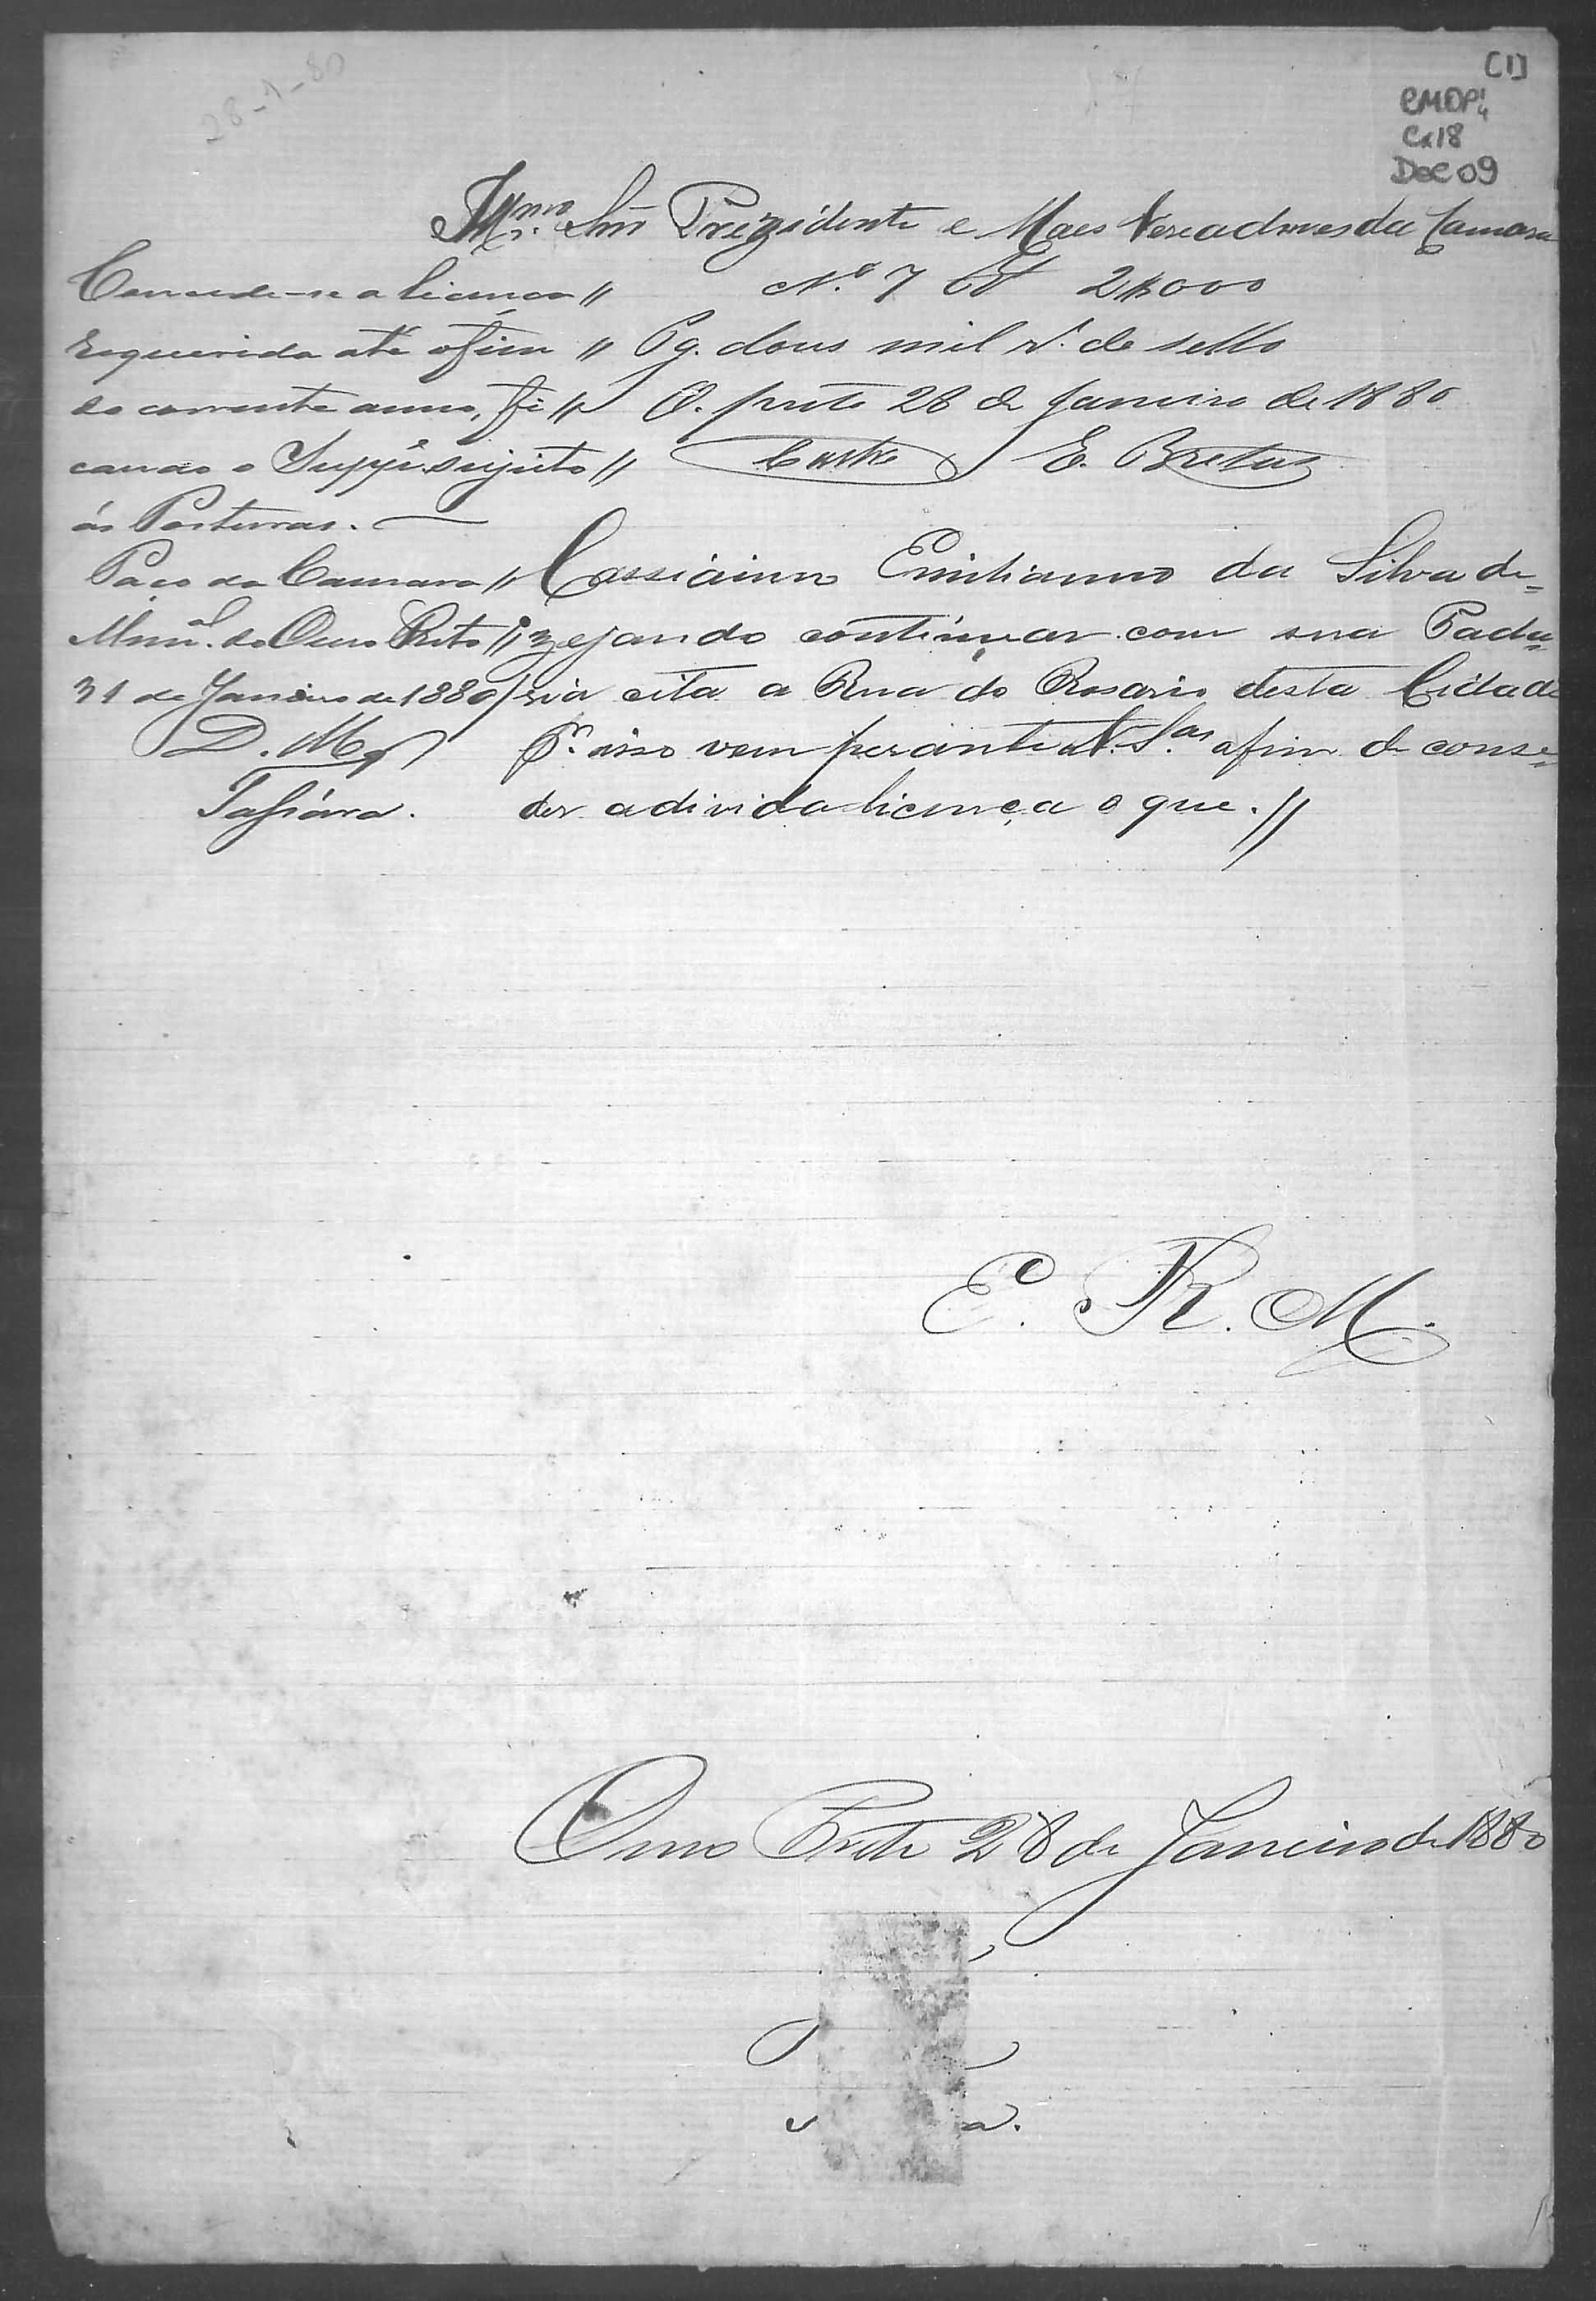 28-1-80
[1]
CMOP
Cx18
Doc 09
Illmo. Snr Prezidente e Maes Vereadores da Camara
Nº 7 2$000
Pg. dous mil rs. de sello
O. preto 28 de Janeiro de 1880
Costa E. Bretas
Concede-se a licença //
requerida até o fim //
do corrente anno, fi //
cando o Suppe. sujeito //
ás Posturas.
Paço da Camara //
Munal. do Ouro Preto //
31 de Janeiro de 1880
D. Mq
Cassianno Emilianno da Silva de=
zejando continuar com sua Pada=
ria cita a Rua do Rosario desta Cidade
Pr. isso vem perante V. Sas. afim de conse=
der a divida licença o que. //
E. R. M.
Ouro Preto 28 de Janeiro de 1880